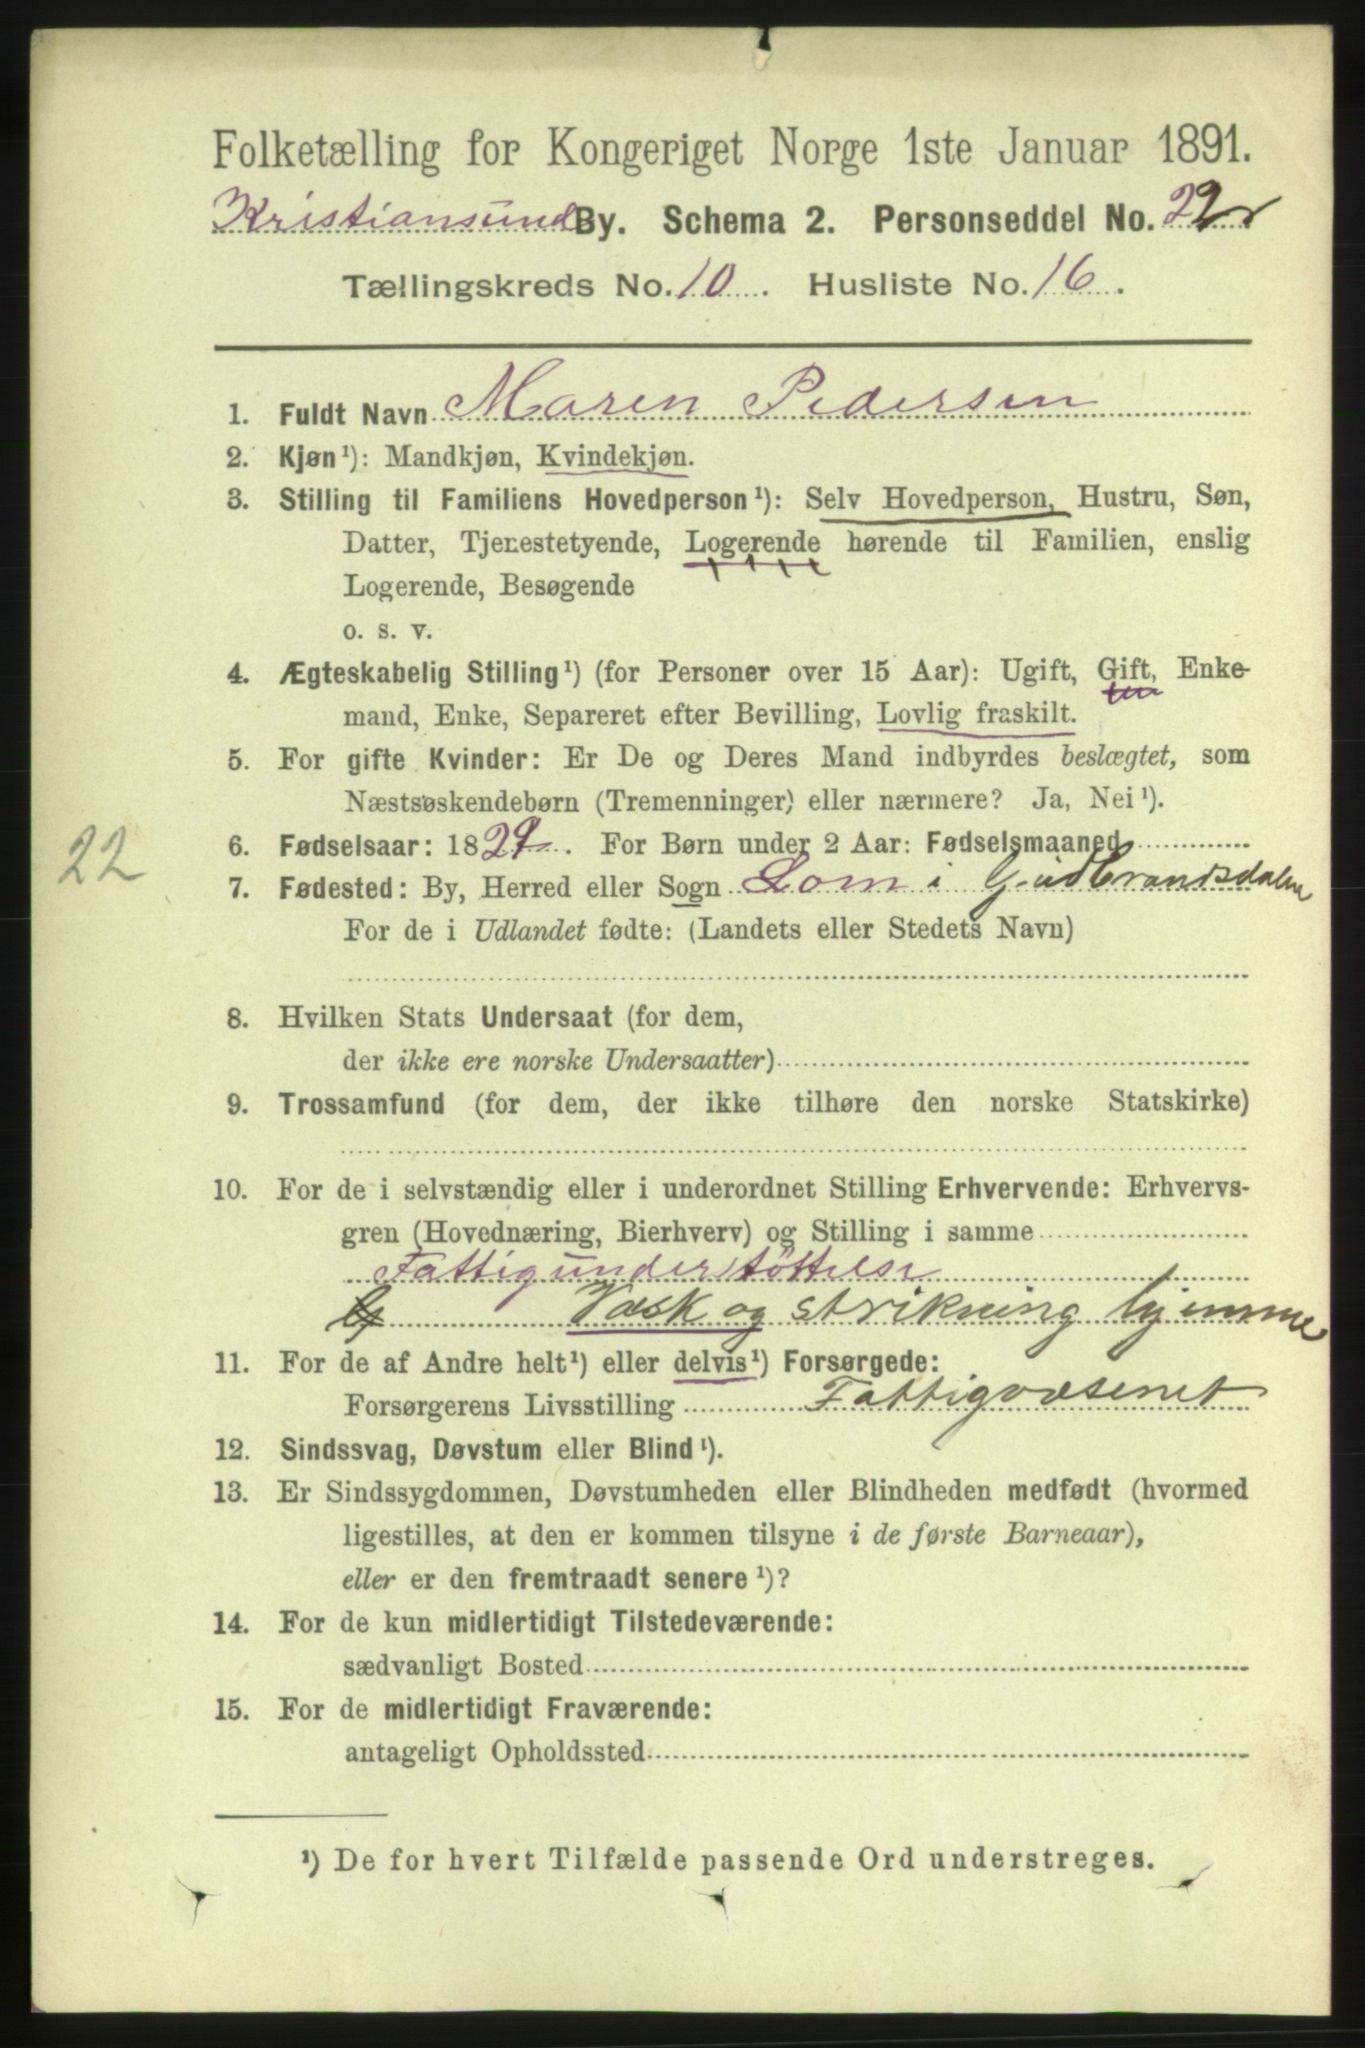 Folketælling for Kongeriget Norge 1ste Januar 1891.
Kristiansund By. Schema 2. Personseddel No. 22
Tællingskreds No. 10. Husliste No. 16.
1. Fuldt Navn Maren Pedersen
2. Kjøn¹): Mandkjøn, Kvindekjøn.
3. Stilling til Familiens Hovedperson¹): Selv Hovedperson, Hustru, Søn,
Datter, Tjenestetyende, Logerende hørende til Familien, enslig
Logerende, Besøgende
o. s. v.
4. Ægteskabelig Stilling¹) (for Personer over 15 Aar): Ugift, Gift, Enke-
mand, Enke, Separeret efter Bevilling, Lovlig fraskilt.
5. For gifte Kvinder: Er De og Deres Mand indbyrdes beslægtet, som
Næstsøskendebørn (Tremenninger) eller nærmere? Ja, Nei¹).
22
6. Fødselsaar: 1829. For Børn under 2 Aar: Fødselsmaaned
7. Fødested: By, Herred eller Sogn Lom i Gudbrandsdalen
For de i Udlandet fødte: (Landets eller Stedets Navn)
8. Hvilken Stats Undersaat (for dem,
der ikke ere norske Undersaatter)
9. Trossamfund (for dem, der ikke tilhøre den norske Statskirke)
10. For de i selvstændig eller i underordnet Stilling Erhvervende: Erhvervs-
gren (Hovednæring, Bierhverv) og Stilling i samme
Fattigunderstøttelse
Vask og strikning hjemme
11. For de af Andre helt¹) eller delvis¹) Forsørgede:
Forsørgerens Livsstilling Fattigvæsenet
12. Sindssvag, Døvstum eller Blind¹).
13. Er Sindssygdommen, Døvstumheden eller Blindheden medfødt (hvormed
ligestilles, at den er kommen tilsyne i de første Barneaar),
eller er den fremtraadt senere¹)?
14. For de kun midlertidigt Tilstedeværende:
sædvanligt Bosted
15. For de midlertidigt Fraværende:
antageligt Opholdssted
¹) De for hvert Tilfælde passende Ord understreges.